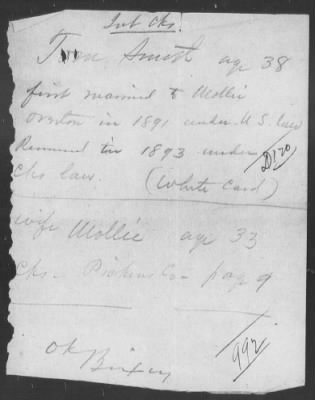 Int Cks.
Tom Smith age 38
first married to Mollie
Overton in 1891 under U S. law
Remarried in 1893 under
D170
Cks law. (White Card)
wife Mollie age 33
Cks - Pickens Co - page 9
OK Bixby
992